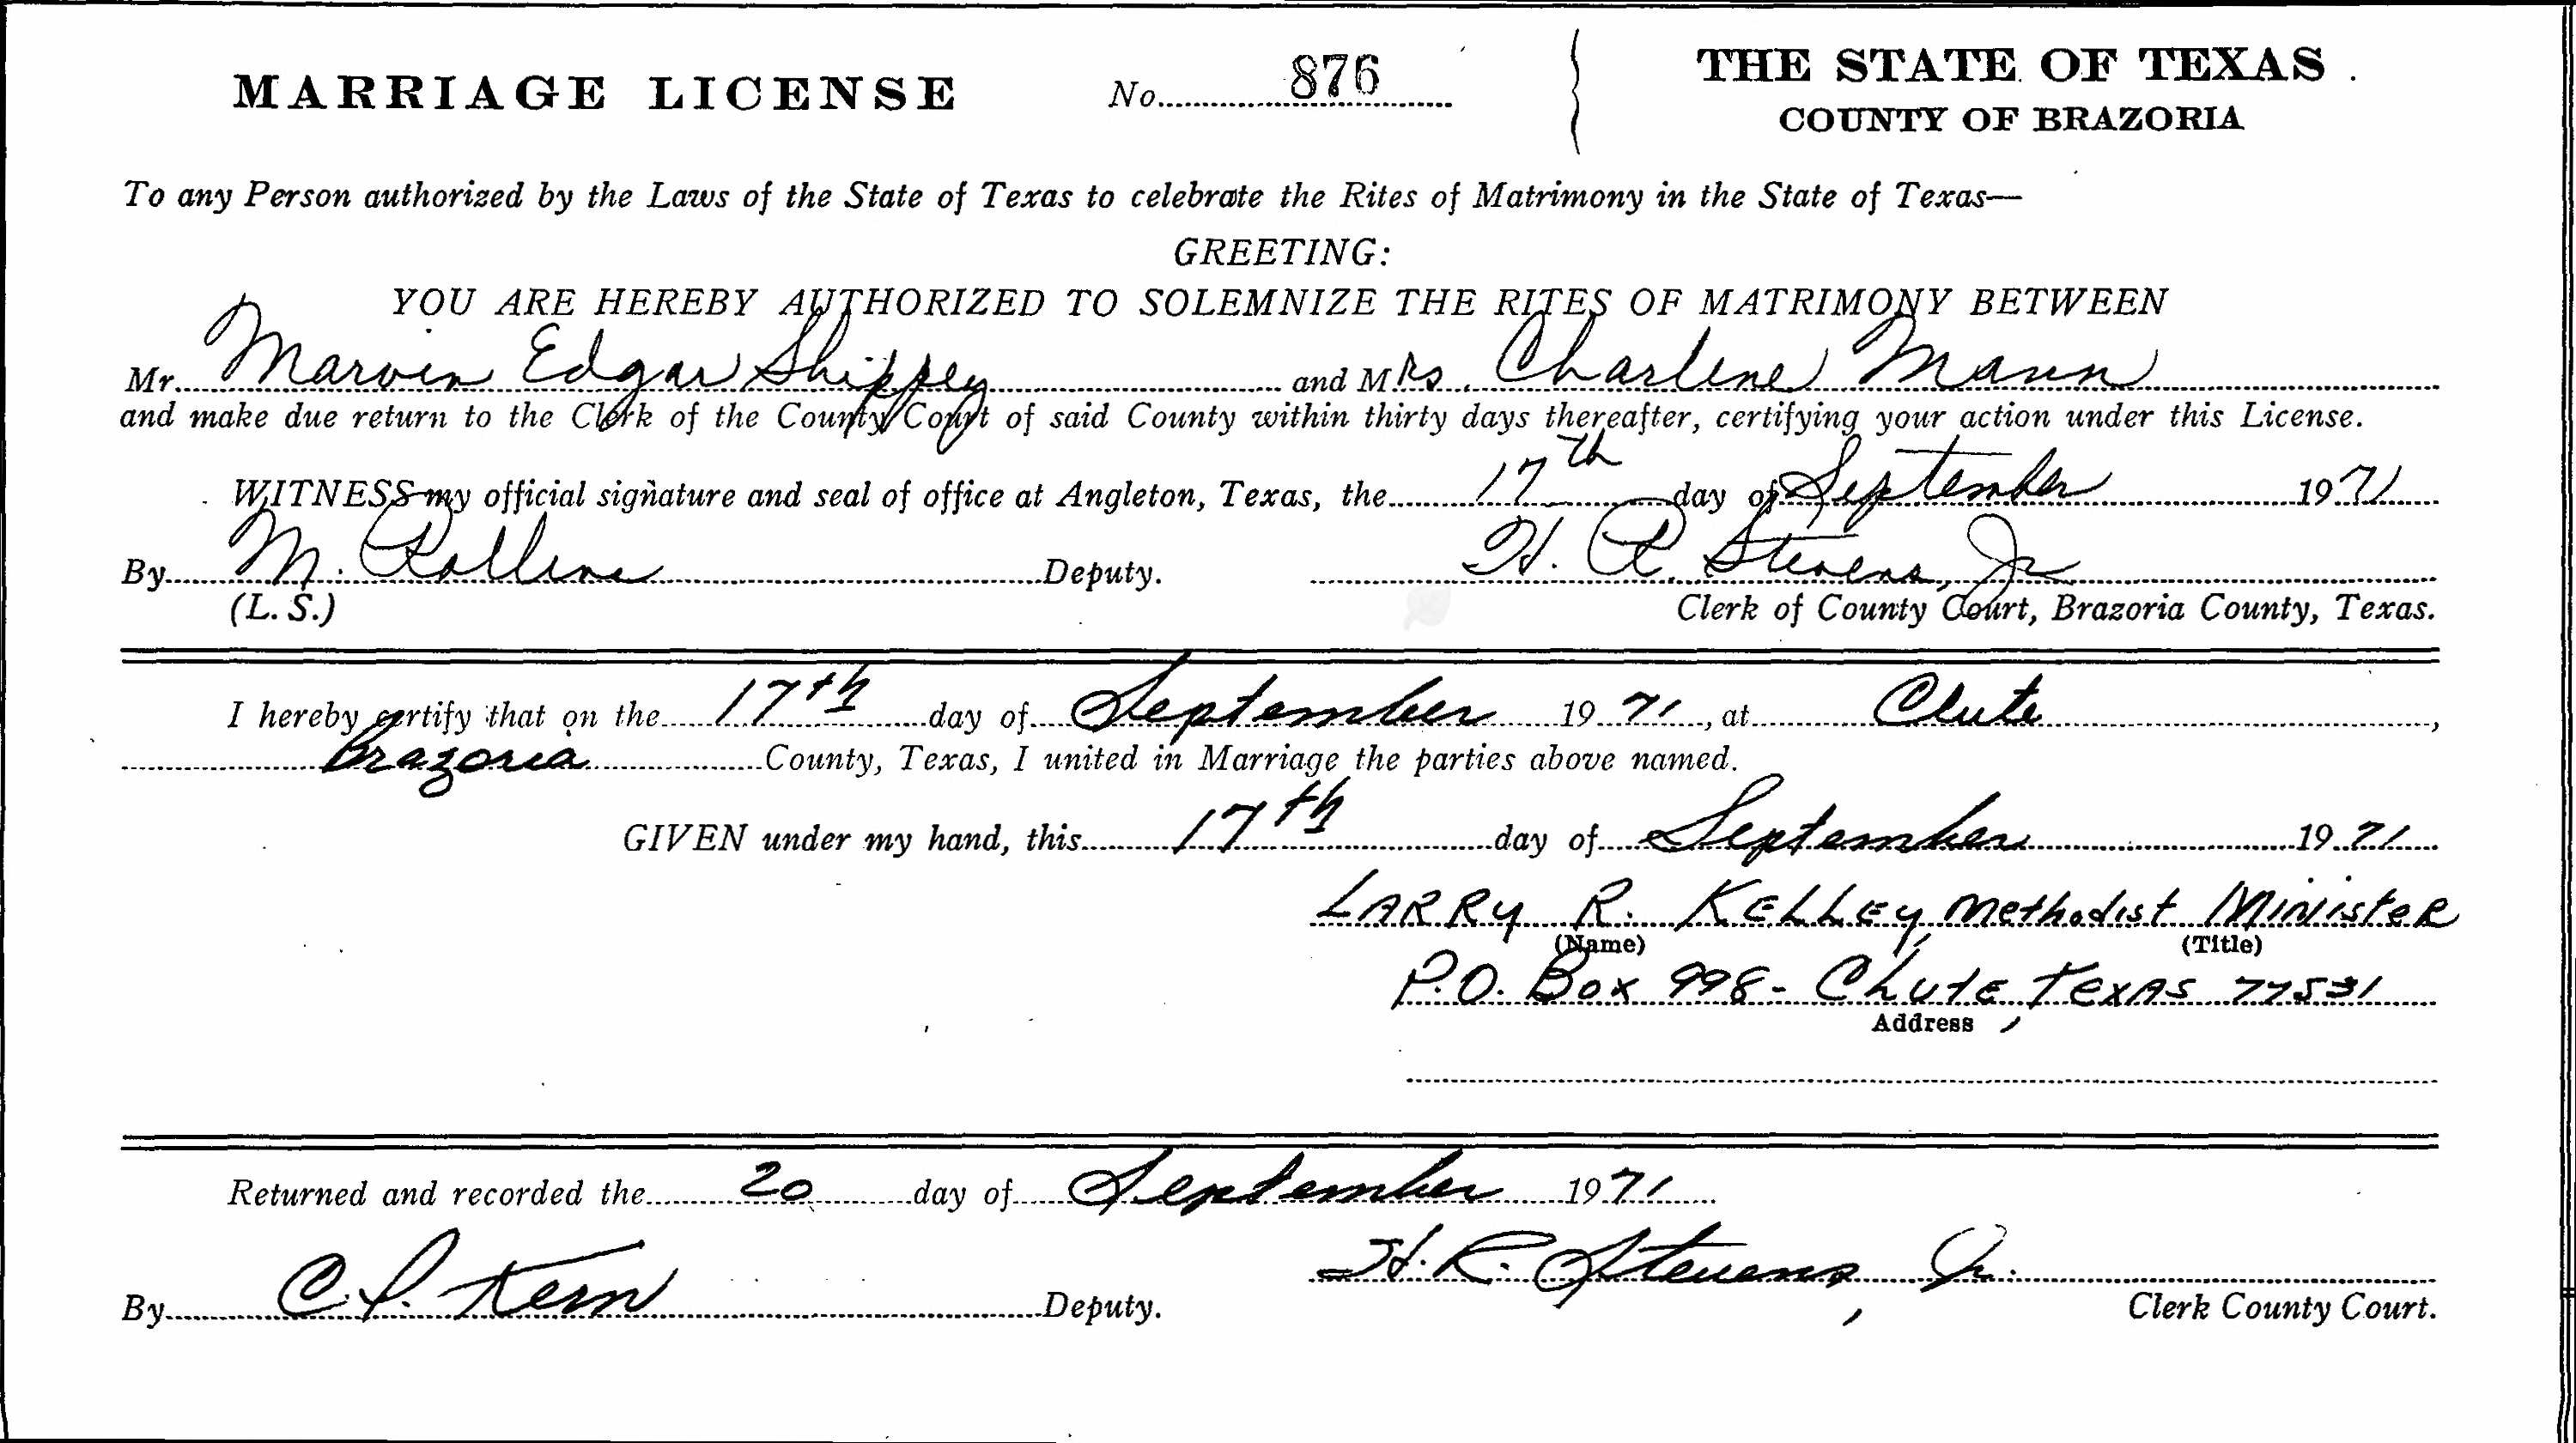 MARRIAGE LICENSE No. 876 THE STATE OF TEXAS
COUNTY OF BRAZORIA
To any Person authorized by the Laws of the State of Texas to celebrate the Rites of Matrimony in the State of Texas—
GREETING:
YOU ARE HEREBY AUTHORIZED TO SOLEMNIZE THE RITES OF MATRIMONY BETWEEN
Mr. Marvin Edgar Shippey and Mrs. Charlene Mann
and make due return to the Clerk of the County Court of said County within thirty days thereafter, certifying your action under this License.
WITNESS my official signature and seal of office at Angleton, Texas, the 17th day of September 1971
By M. Deputy. H. R. Stevens, Jr
(L. S.) Clerk of County Court, Brazoria County, Texas.
I hereby certify that on the 17th day of September 1971, at Clute,
Brazoria County, Texas, I united in Marriage the parties above named.
GIVEN under my hand, this 17th day of September 1971
LARRY R. KELLEY, Methodist MINISTER
(Name) (Title)
P.O. Box 998 - Clute, Texas 77531
Address
Returned and recorded the 20 day of September 1971
H. R. Stevens, Jr.
By C. P. Kern Deputy. Clerk County Court.